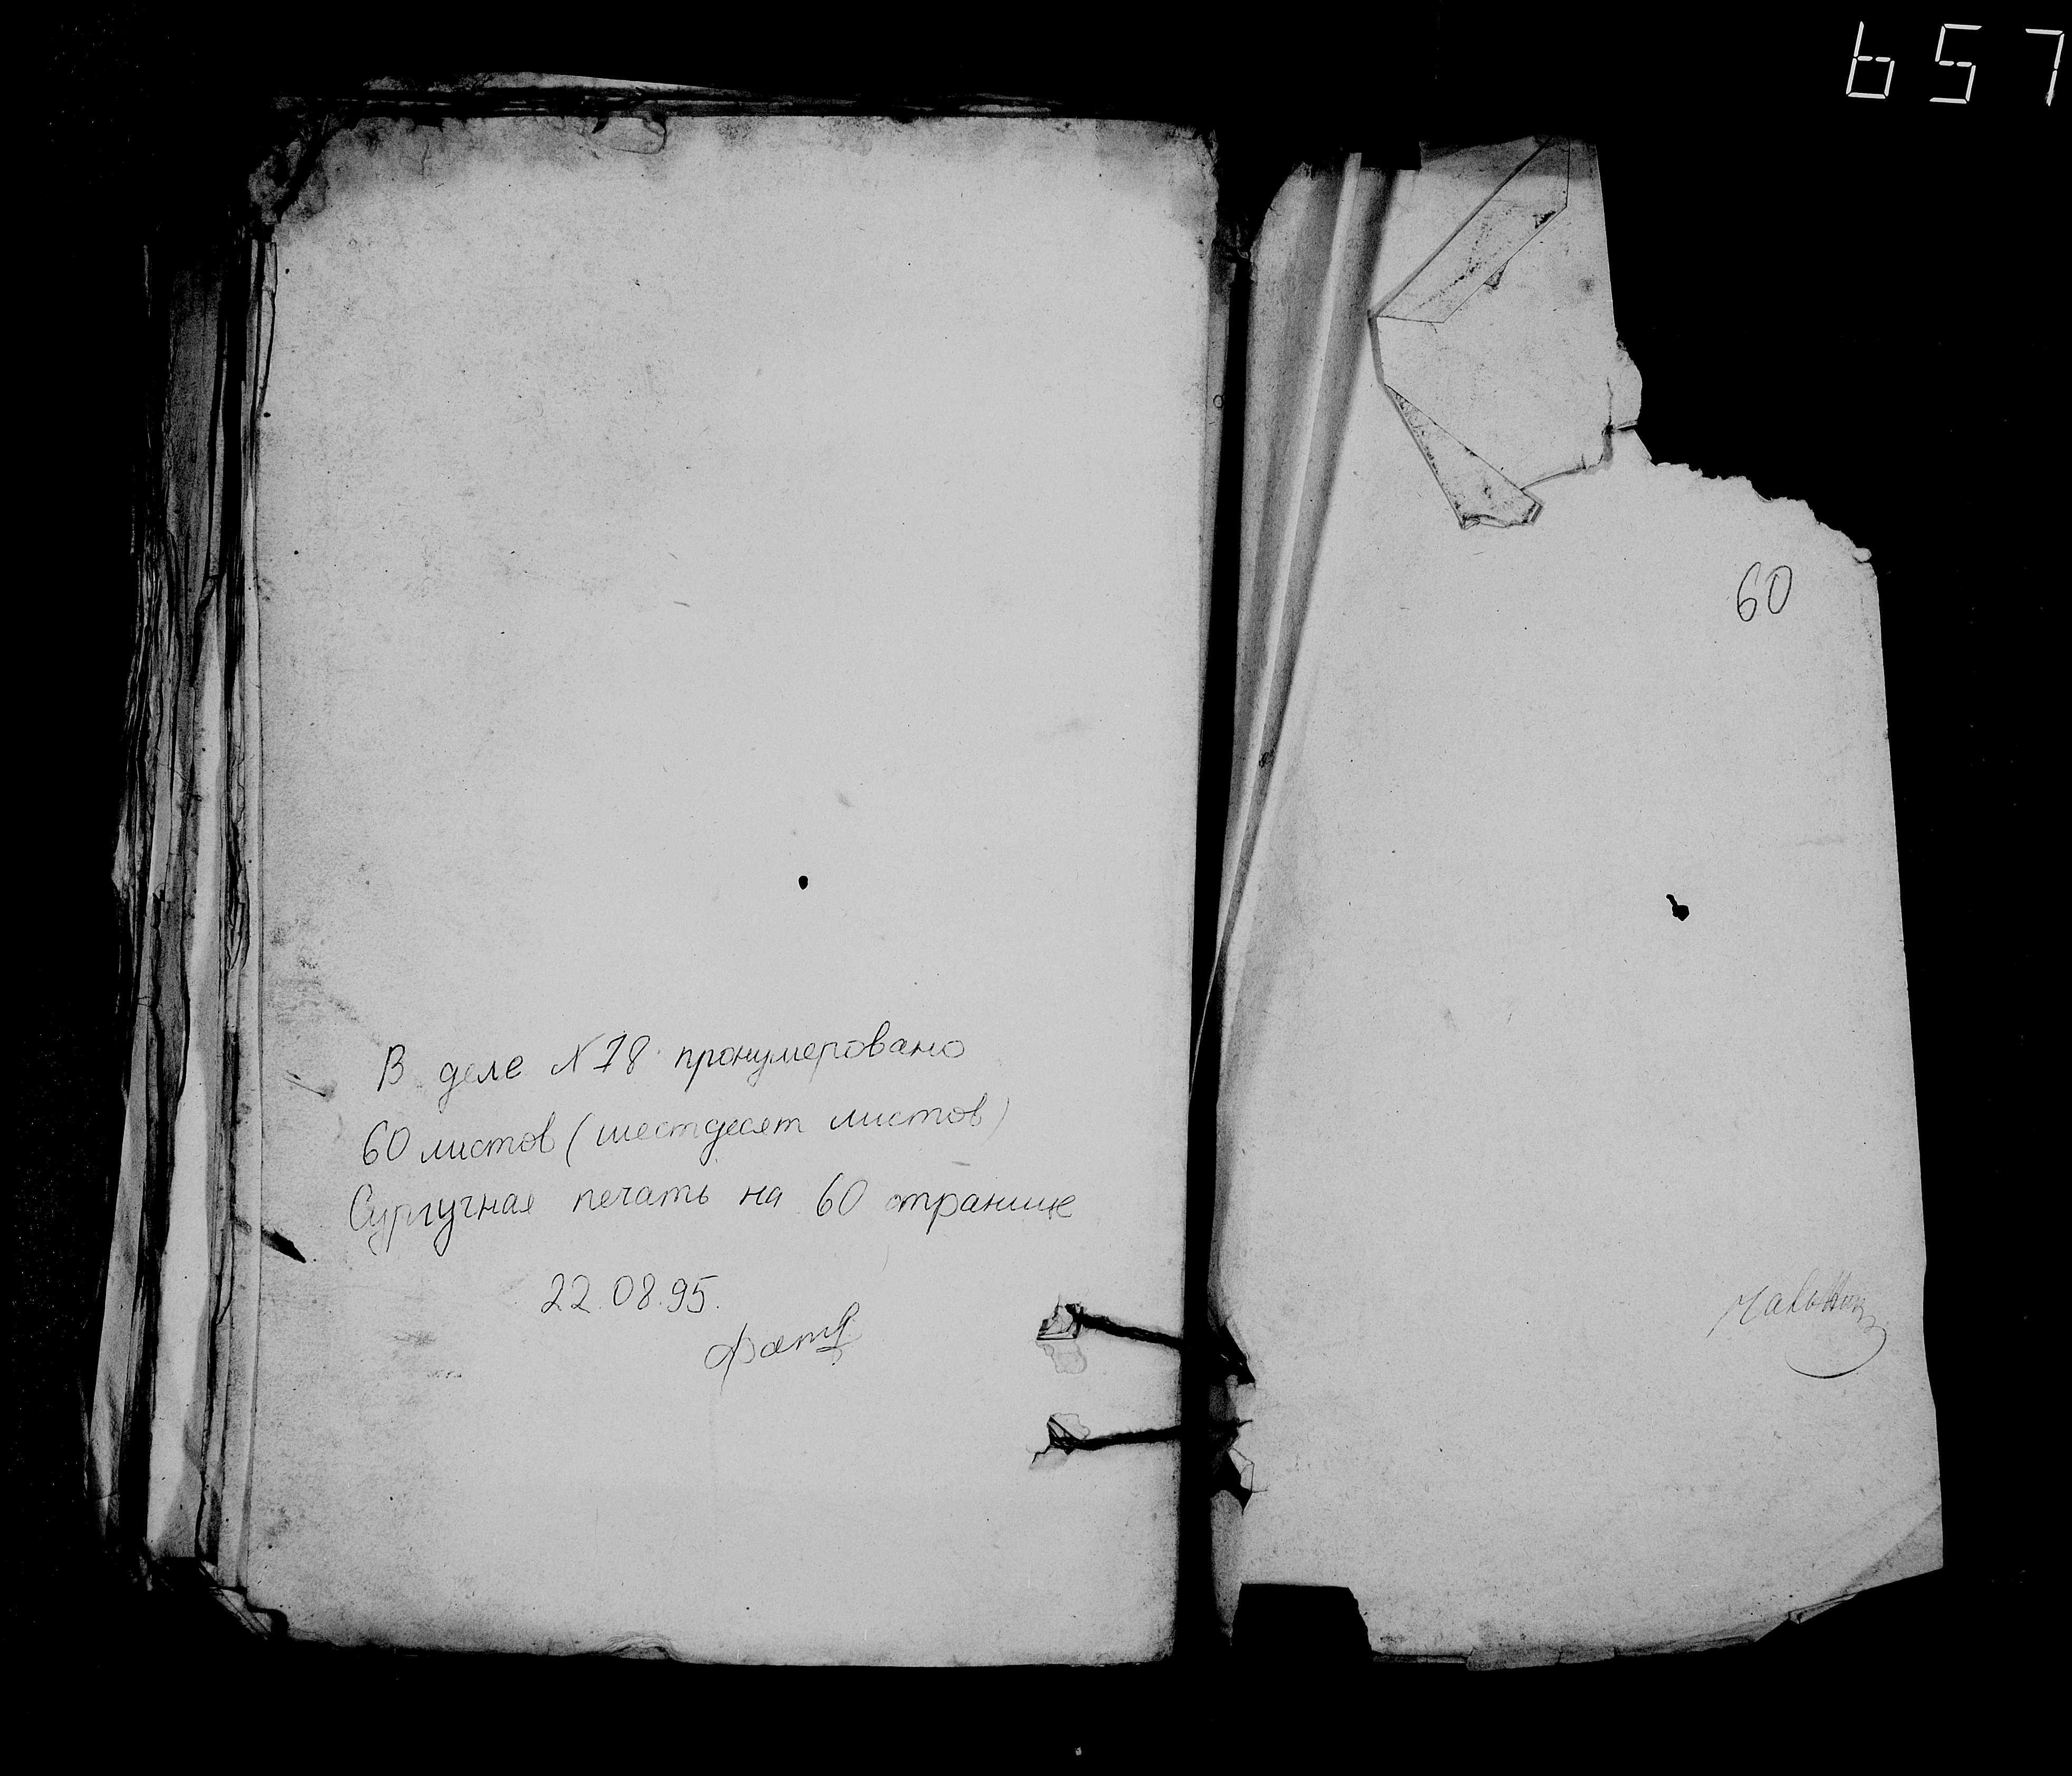 657
В деле N 18 пронумеровано
60 листов (шестдесят листов)
Сургучная печать на 60 странице
22.08.95.
60